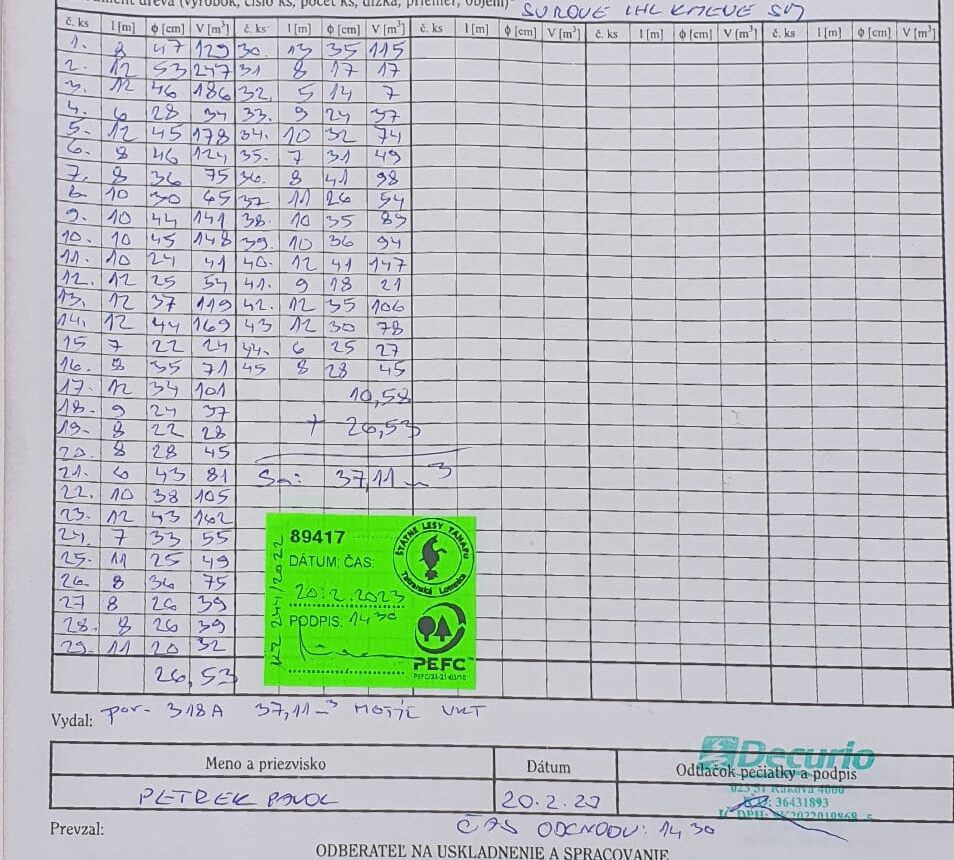 dreva (výrobok, číslo ks, počet ks, dĺžka, priemer, objem) SUROVÉ IHL KMENE SM
č. ks l [m] ϕ [cm] V [m³] č. ks l [m] ϕ [cm] V [m³] č. ks l [m] ϕ [cm] V [m³] č. ks l [m] ϕ [cm] V [m³] č. ks l [m] ϕ [cm] V [m³]
1. 8 47 129 30. 13 35 115
2. 12 53 247 31 8 17 17
3. 12 46 186 32. 5 14 7
4. 6 28 34 33. 9 24 37
5. 12 45 178 34. 10 32 74
6. 8 46 124 35. 7 31 49
7. 8 36 75 36. 8 41 98
8. 10 30 65 37. 11 26 54
9. 10 44 141 38. 10 35 89
10. 10 45 148 39. 10 36 94
11. 10 24 41 40. 12 41 147
12. 12 25 54 41. 9 18 21
13. 12 37 119 42. 12 35 106
14. 12 44 169 43 12 30 78
15 7 22 24 44. 6 25 27
16. 8 35 71 45 8 28 45
17. 12 34 101 10,58
18. 9 24 37
19. 8 22 28 + 26,53
20. 8 28 45
21. 6 43 81 Sa: 37,11 m³
22. 10 38 105
23. 12 43 162
24. 7 33 55
25. 11 25 49
26. 8 36 75
27 8 26 39
28. 8 26 39
29. 11 20 32
26,53
89417
DÁTUM; ČAS:
20.2.2023
PODPIS: 14 30
KZ 244/2022
ŠTÁTNE LESY TANAPU
Tatranská Lomnica
PEFC
PEFC/23-21-03/10
Vydal: por. 318A 37,11 m³ MOTÍC VKT
Meno a priezvisko Dátum Odtlačok pečiatky a podpis
Decurio
023 51 Raková 4000
IČO: 36431893
IČ DPH: SK2022019868
PETREK PAVOL 20.2.23
Prevzal: ČAS ODCHODU: 14 30
ODBERATEĽ NA USKLADNENIE A SPRACOVANIE